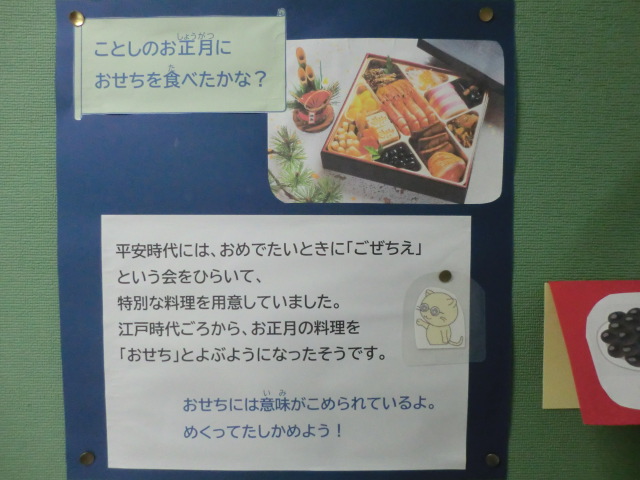 ことしのお正月に
おせちを食べたかな？
平安時代には、おめでたいときに「ごぜちえ」
という会をひらいて、
特別な料理を用意していました。
江戸時代ごろから、お正月の料理を
「おせち」とよぶようになったそうです。
おせちには意味がこめられているよ。
めくってたしかめよう！